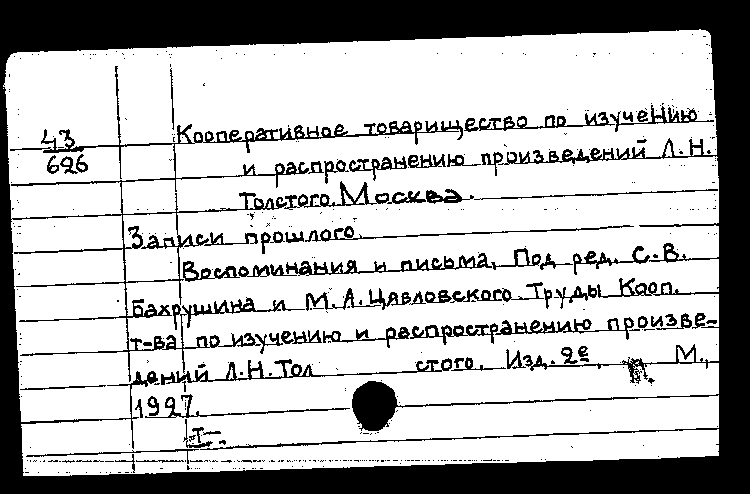 43
626
Кооперативное товарищество по изучению
и распространению произведений Л.Н.
Толстого. Москва.
Записи прошлого.
Воспоминания и письма, Под ред. С.В.
Бахрушина и М.А.Цявловского. Труды Кооп.
т-ва по изучению и распространению произве-
дений Л.Н.Тол стого. Изд. 2е. М.,
1927.
I-